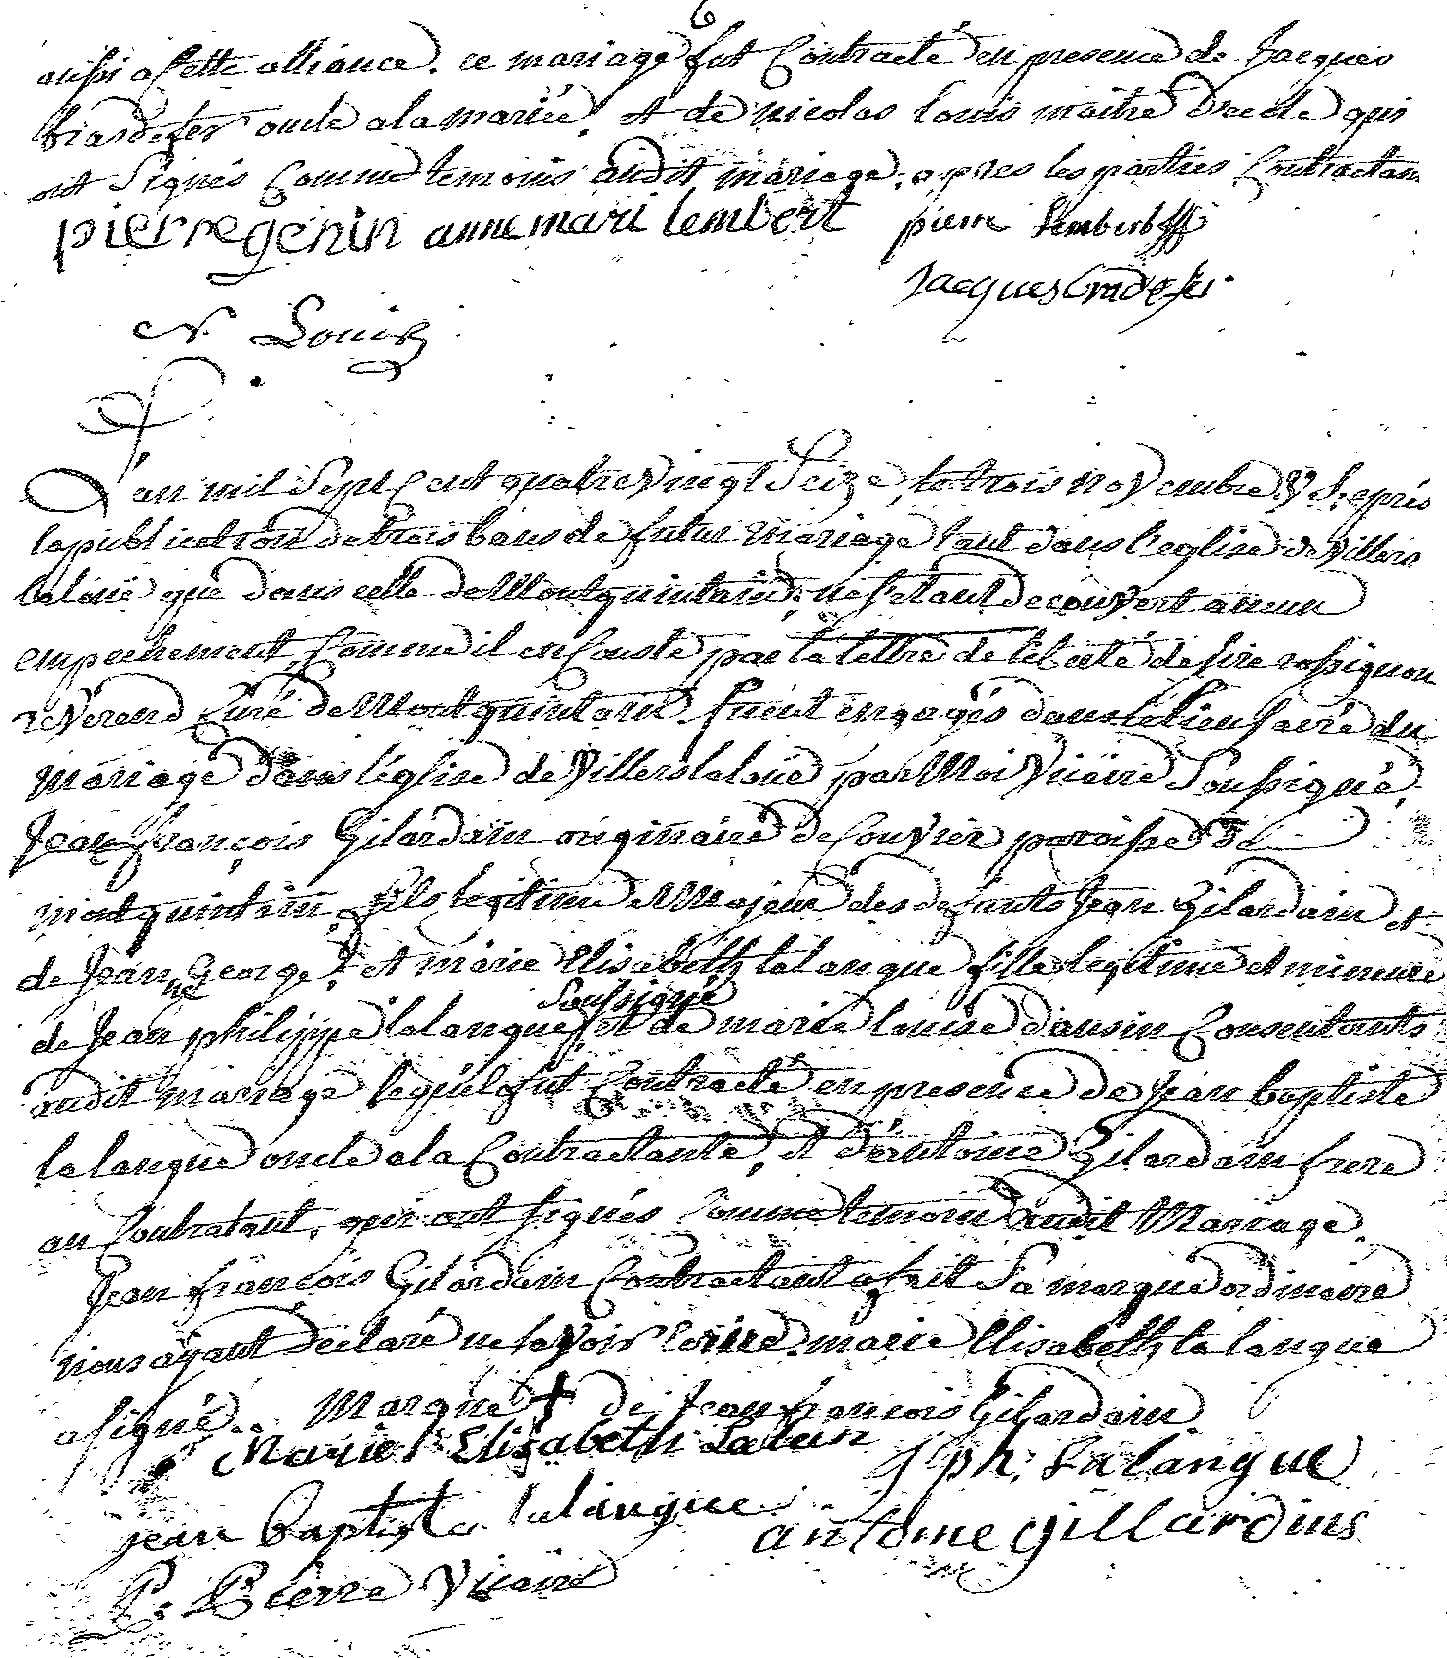 6
aussi a Cette alliance. ce mariage fut Contracté en presence de Jacques
brasdefer oncle a la mariée. et de nicolas Louis maitre D'ecole qui
ont Signés Comme temoins audit mariage. apres les parties Contractan
pierre genin anne mari lembert pierre Lembert
Jacques bradefer
N Louis
L'an mil Sept Cent quatre vingt Seize, le trois novembre V. S. après
la publication de trois bans de futur mariage tant dans l'eglise de villers
laloüe que dans celle de Montquintain; ne s'etant decouvert aucun
empechement, Comme il en Conste par la lettre de liberté de sire rossignon
reverend Curé de Montquintain furent engagés dans le lien sacré du
mariage dans l'église de Villers laloüe par Moi Vicaire Soussigné,
Jean françois Gilardain originaire de Couvreu paroisse de
montquintain, fils legitime et Majeur des defunts Jean Gilardain et
de Jeanne George; et marie Elisabeth lalangue fille legitime et mineure
de Jean philippe lalangue soussigné et de marie louise dausin Consentants
audit mariage lequel fut Contracté en presence de Jean baptiste
lalangue oncle a la Contractante, et d'antoine Gilardain frere
au Contractant, qui ont signés Comme temoins audit Mariage.
Jean françois Gilardain Contractant a fait Sa marque ordinaire
nous ayant declaré ne savoir écrire. marie Elisabeth lalangue
a signé. Marque + de Jean françois Gilardain
Marie Elisabeth Lalan J ph: Lalangue
jean baptiste lalangue antoine gillardins
P: Pierre Vicaire